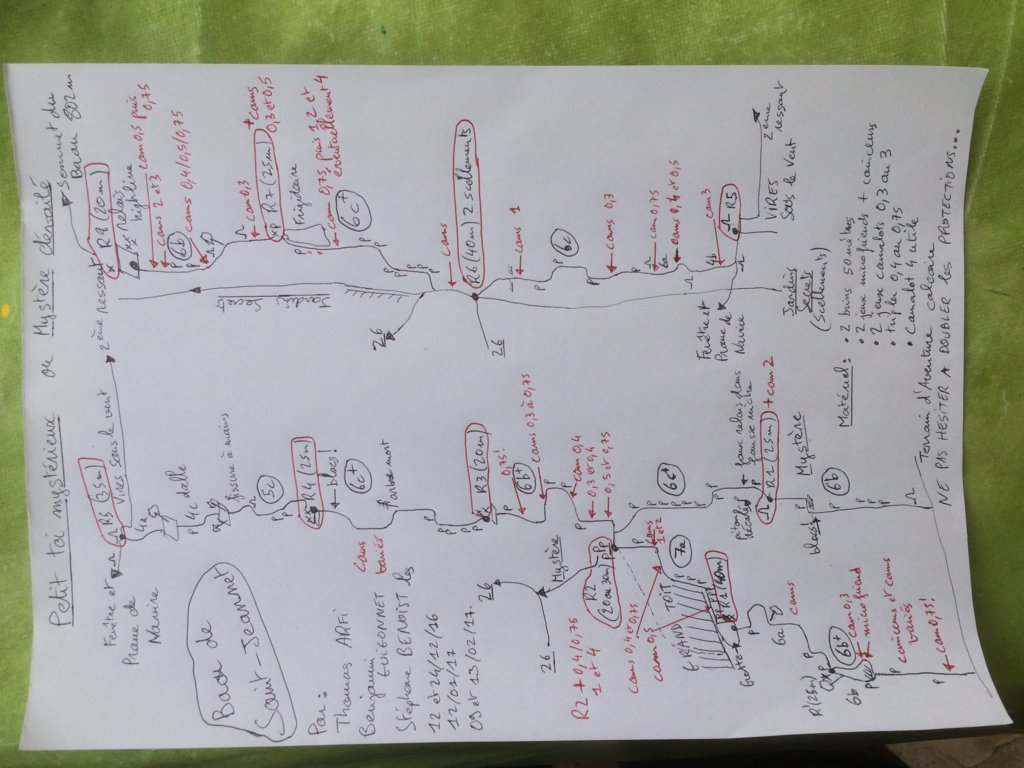 Petit toi mystérieux ou Mystère dévoilé
Baou de
Saint-Jeannet
Par:
Thomas ARFI
Benjamin
GUIGONNET
Stéphane BENOIST les
12 et 24/12/16
12/01/17
09 et 13/02/17.
Fenêtre et
Prame de
Navire
R5 (35m)
Vires sous le vent
2ème ressaut
4a
4c dalle
fissure à mains
5c
R4 (25m)
blocs!
6c+
cams
R3 (20m)
0,75!
6b+
cams 0,3 à 0,75
cam 0,4
0,3 et 0,4
0,5 et 0,75
26
26
Mystère
R2
(20 ou 30m)
R2 + 0,4/0,75
1 et 4
cams 0,4 et 0,75
cam 0,5
cams
1 et 2
7a
GRAND TOIT
Grotte
R1 (40m)
6a
cams
R1 (25m)
6b+
6b
cam 0,3
microfriend
cams
cam 0,75!
6c+
faux relais dans
fausse niche
R1 (25m) + cam 2
Mystère
blocs
6b
sommet du
Baou 802m
R8 (20m)
relais
highline
cam 0,5 puis
0,75
cams 2 et 3
6b
cams 0,4/0,5/0,75
cam 0,3
R7 (25m) + cams
0,3 et 0,5
Frigidaire
cam 0,75, puis 1, 2 et
éventuellement 4
6c+
Jardin
Secret
26
26
cams
R6 (40m) 2 scellements
cams 1
6c
cams 0,3
cam 0,75
6a
cams 0,4 et 0,5
cam 3
4b
R5
Fenêtre et
Prame de
Navire
VIRES
Sous le Vent
2ème ressaut
Jardin
Secret
(Scellements)
Matériel:
• 2 brins 50 mètres
• 2 jeux microfriends + coinceurs
• 2 jeux camalots 0,3 au 3
• triple 0,4 au 0,75
• Camalot 4 utile
Terrain d'Aventure calcaire
NE PAS HESITER A DOUBLER les PROTECTIONS...